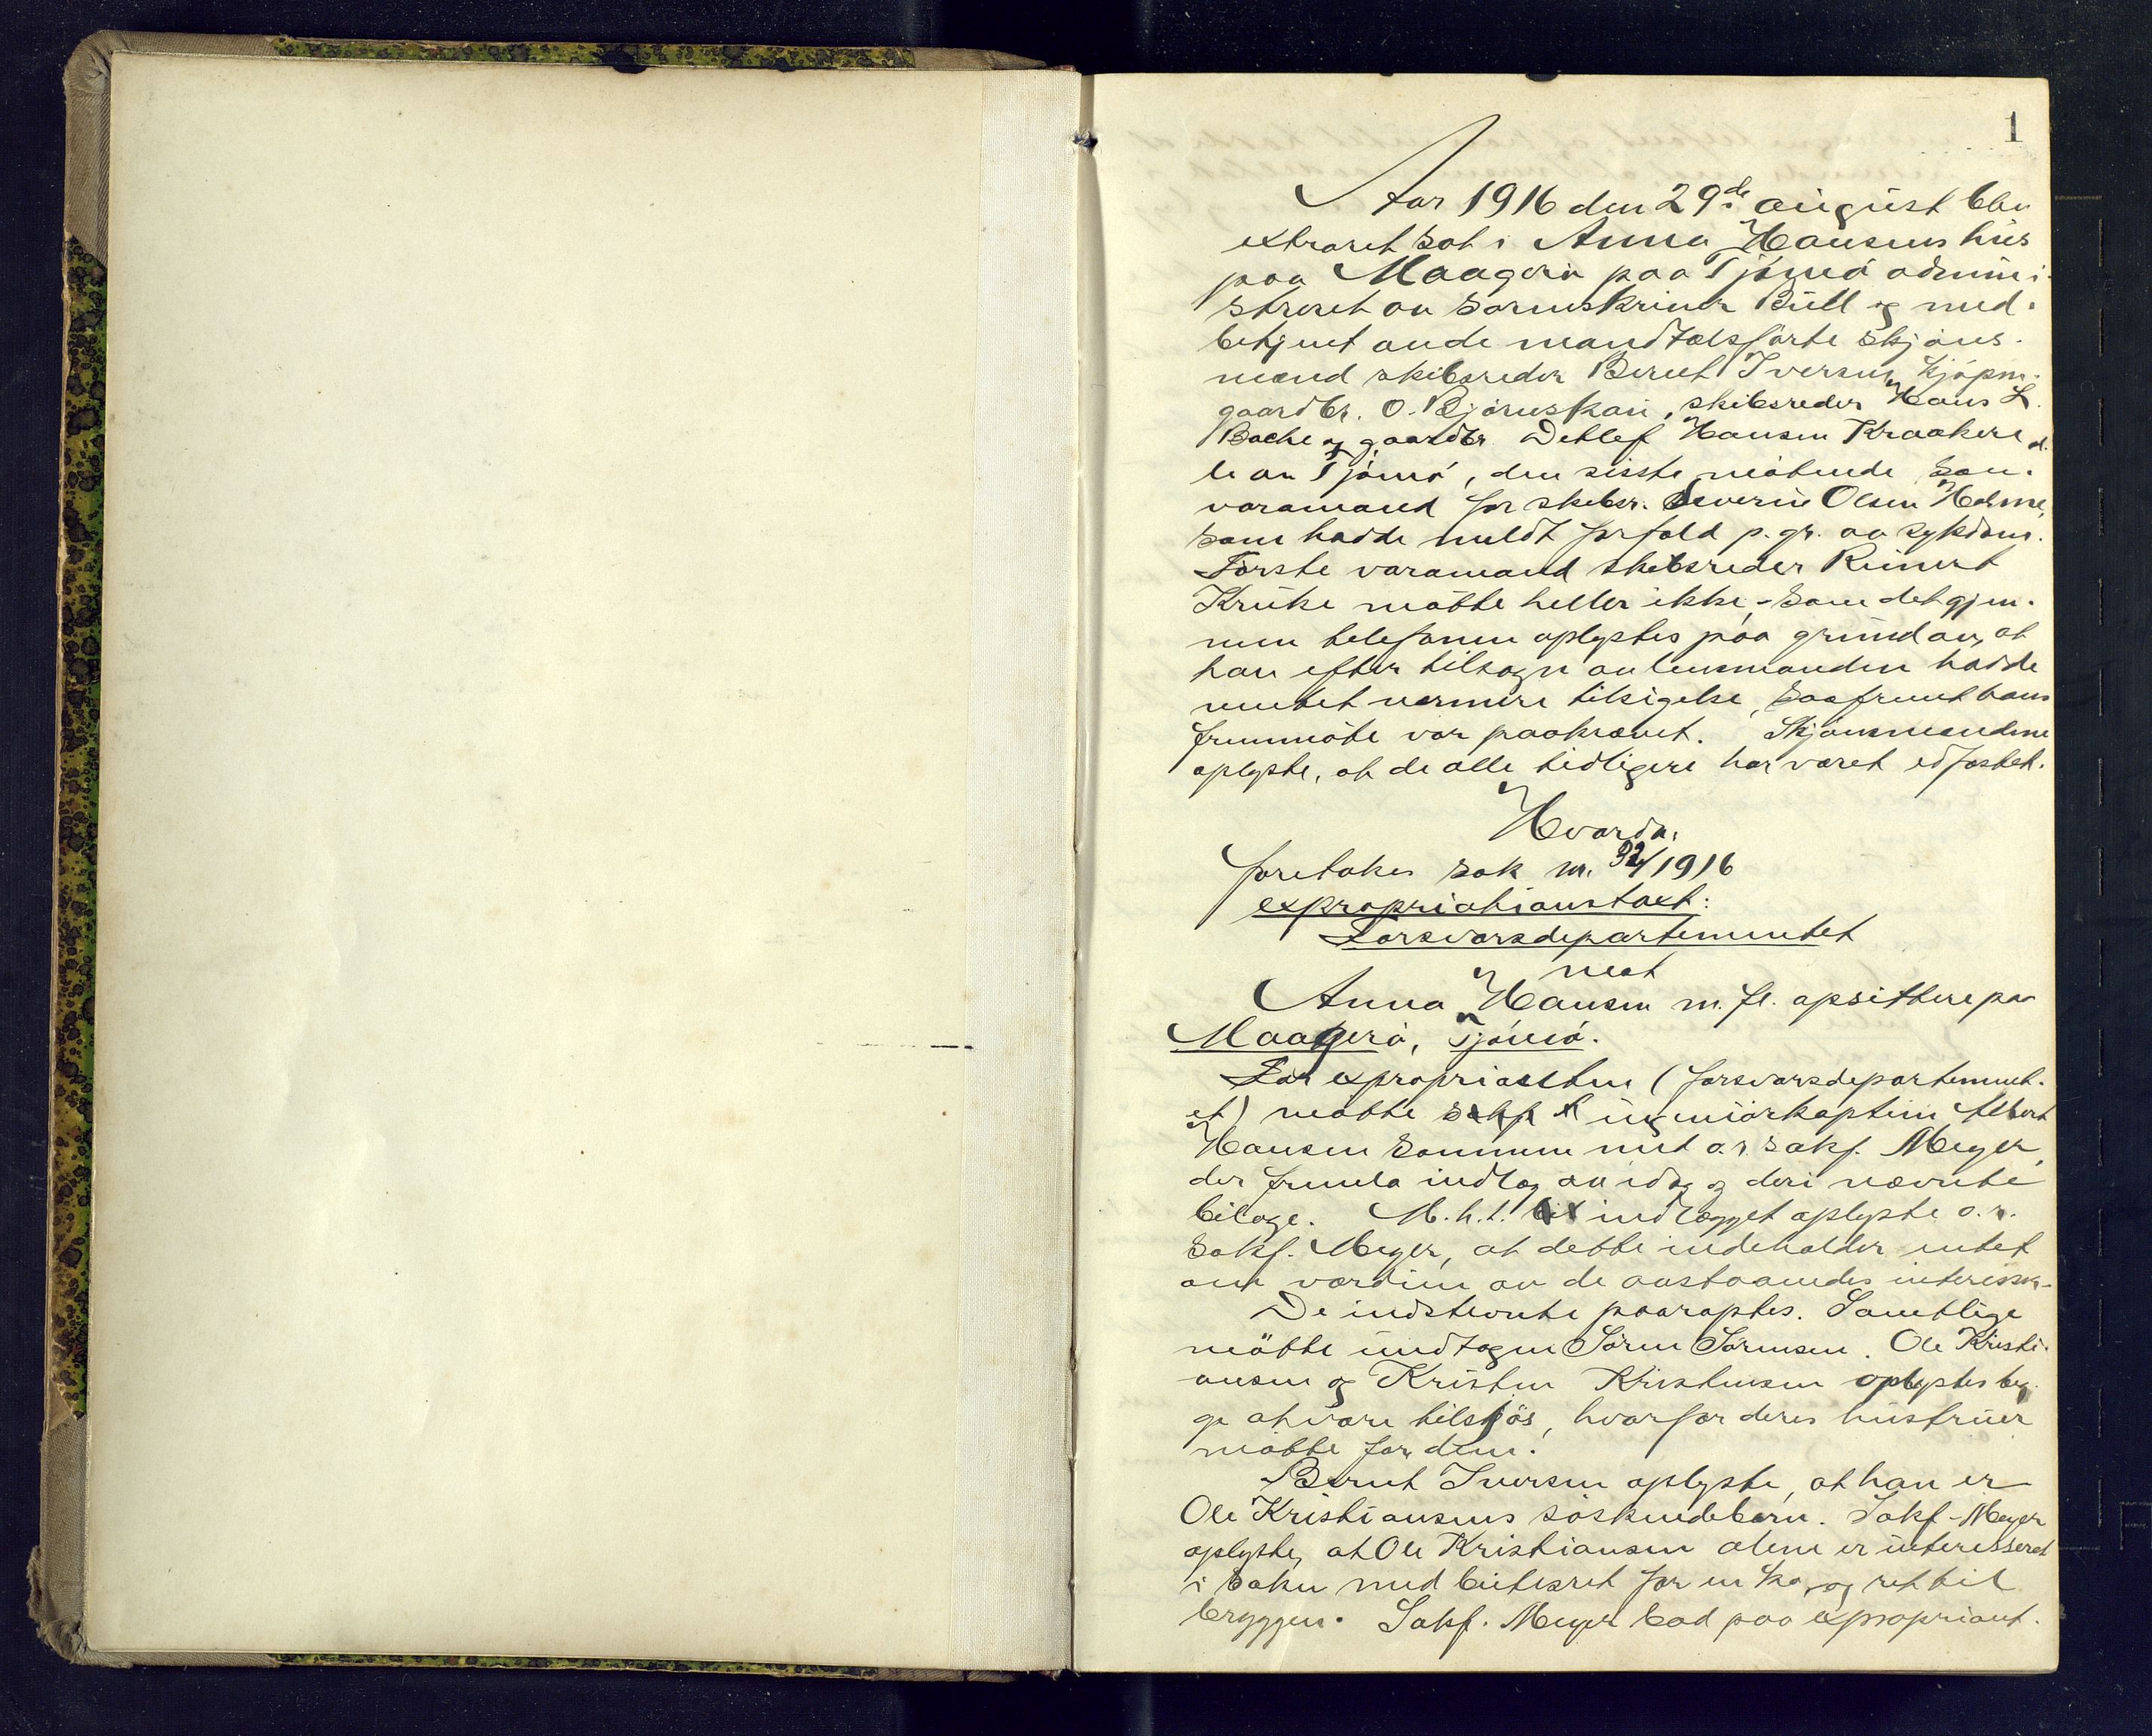 1
Aar 1916 den 29de august blev
extraret sat i Anna Hansens hus
paa Maagerö paa Tjömö admini-
streret av sorenskriver Bull og med-
betjent av de mandtalsförte skjöns-
mænd skibsreder Bernt Iversen, kjöpm.
gaardbr. O. Björnskau, skibsreder Hans L.
Bache og gaardbr. Detlef Hansen Kraakere
le av Tjömö, den sisste mötende som
varamand for skibsr. Severin Olsen Holme,
som hadde meldt forfald p. gr. av sykdom.
Förste varamand skibsreder Reinert
Kruke mötte heller ikke, som det gjen-
nem telefonen oplystes paa grund av, at
han efter tilsagn av lensmanden hadde
ventet nærmere tilsigelse, saafremt hans
fremmöte var paakrævet. Skjönsmændene
oplyste, at de alle tidligere har været edfæstet.
Hvorda:
foretokes sak nr. 92/1916
expropriationstaxt:
Forsvarsdepartementet
mot
Anna Hansen m. fl. opsittere paa
Maagerö, Tjömö.
For expropriaten (forsvarsdepartement-
et) mötte ingeniörkaptein Albert
Hansen sammen med o.r. sakf. Meyer,
der fremla indlæg av idag og deri nævnte
bilage. M.h.t. indlægget oplyste o.r.
sakf. Meyer, at dette indeholder intet
om værdien av de avstaaendes interesser.
De indstevnte paaroptes. Samtlige
mötte undtagen Sören Sörensen. Ole Kristi-
ansen og Kristen Kristensen oplystes beg-
ge at være tilsjös, hvorfor deres hustruer
mötte for dem.
Bernt Iversen oplyste, at han er
Ole Kristiansens söskendebarn. Sakf. Meyer
oplyste, at Ole Kristiansen alene er interesseret
i saken med beitesret for en ko, og ret til
bryggen. Sakf. Meyer bad paa expropriant-